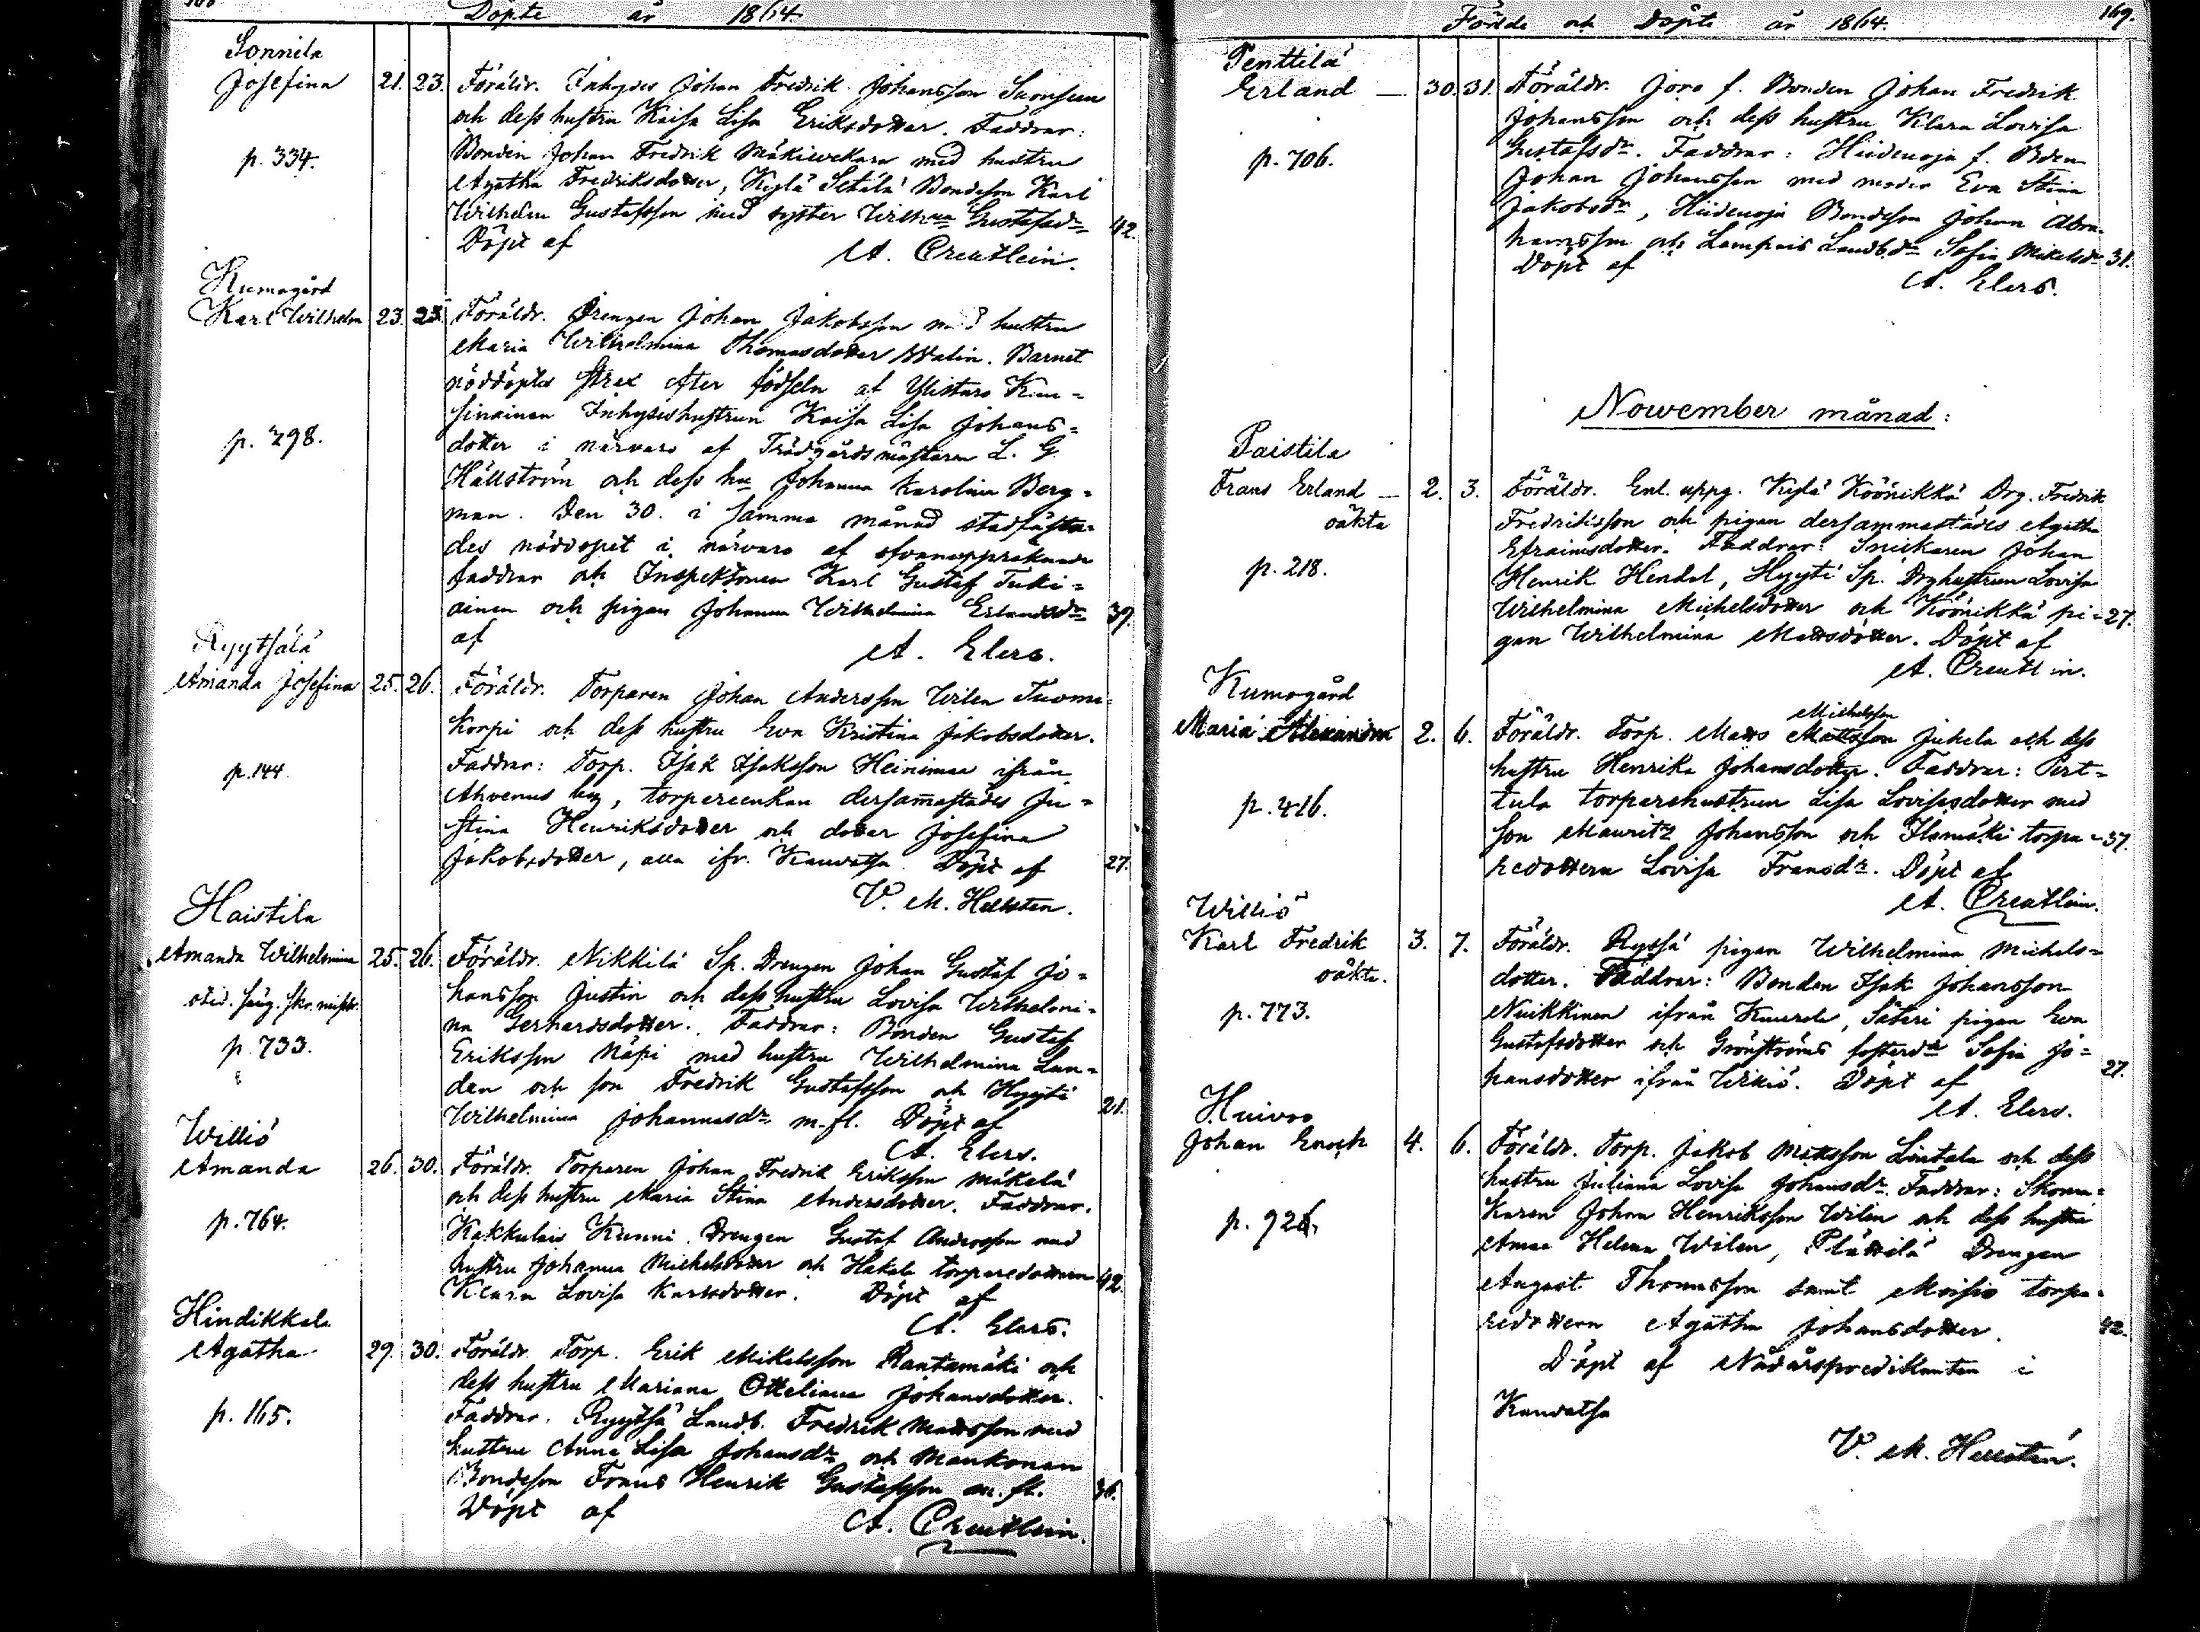 Döpte år 1864.
Sonnila
Josefina 21. 23. Föräldr. Inhyses Johan Fredrik Johansson Suonsuu
och dess hustru Kaisa Lisa Eriksdotter. Faddrar:
p. 334. Bonden Johan Fredrik Mäkiwekara med hustru
Agatha Fredriksdotter, Kylä Setälä Bondeson Karl
Wilhelm Gustafsson med syster Wilhna Gustafsdr 42.
Döpt af A. Creutlein.
Kumogård
Karl Wilhelm 23. 23. Föräldr. Drengen Johan Jakobsson med hustru
Maria Wilhelmina Thomasdotter Walin. Barnet
nöddöptes strax efter födseln af Ylistaro
Inhyseshustrun Kaisa Lisa Johans-
p. 298. dotter i närvaro af Trädgårdsmästaren L. G.
Hällström och dess hu Johanna Karolina Berg-
man. Den 30. i samma månad stadfästa-
des nöddopet i närvaro af ofvanuppräknade
faddrar och Inspektoren Karl Gustaf Tuki-
ainen och pigan Johanna Wilhelmina Erlandsdr 39.
af A. Elers.
Ryytsälä
Amanda Josefina 25. 26. Föräldr. Torparen Johan Andersson Wilen Tuomi-
korpi och dess hustru Eva Kristina Jakobsdotter.
p. 144. Faddrar: Torp. Isak Isaksson Heinimaa ifrån
Ahvenus by, torpareenkan dersammastädes Ju-
stina Henriksdotter och dotter Josefina
Jakobsdotter, alla ifr. Kauvatsa. Döpt af 27.
V. M. Hellsten.
Haistila
Amanda Wilhelmina 25. 26. Föräldr. Nikkilä Sp. Drengen Johan Gustaf Jo-
hansson Justin och dess hustru Lovisa Wilhelmi-
na Gerhardsdotter. Faddrar: Bonden Gustaf
p. 733. Eriksson Näpi med hustru Wilhelmina Lun-
den och son Fredrik Gustafsson och Hyyti
Wilhelmina Johannasdr m. fl. Döpt af 21.
A. Elers.
Williö
Amanda 26. 30. Föräldr. Torparen Johan Fredrik Eriksson Mäkelä
och dess hustru Maria Stina Andersdotter. Faddrar.
p. 764. Kakkulais Kunni Drengen Gustaf Andersson med
hustru Johanna Michelsdotter och Hakala torparedottern 42.
Klara Lovisa Karlsdotter. Döpt af
A. Elers.
Hindikkala
Agatha 29. 30. Föräldr. Torp. Erik Mikelsson Rantamäki och
dess hustru Mariana Otteliana Johansdotter.
p. 165. Faddrar. Ryytsä Landb. Fredrik Mattsson med
hustru Anna Lisa Johansdr och Maukonen
Bondeson Frans Henrik Gustafsson m. fl. 36.
Döpt af A. Creutlein.
Födde och Döpte år 1864. 169.
Penttilä
Erland 30. 31. Föräldr. Joro f. Bonden Johan Fredrik
Johansson och dess hustru Klara Lovisa
p. 706. Gustafsdr. Faddrar: Hiidenoja f. Bden
Johan Johansson med moder Eva Stina
Jakobsdr, Hiidenoja Bondeson Johan Abra-
hamsson och Lampais Landb.dr Sofia Mikelsdr 31.
Döpt af A. Elers.
Nowember månad:
Paistila
Frans Erland 2. 3. Föräldr. Enl. uppg. Kylä Köönikkä Drg. Fredrik
oäkta Fredriksson och pigan dersammastädes Agatha
Efraimsdotter. Faddrar: Snickaren Johan
p. 218. Henrik Hendel, Hyyti Sp. Drghustrun Lovisa
Wilhelmina Michelsdotter och Köönikkä pi- 27.
gan Wilhelmina Mattsdotter. Döpt af
A. Creutlin.
Kumogård
Maria Alexandra 2. 6. Föräldr. Torp. Matts Michelsson Mattsson Jukela och dess
hustru Henrika Johansdotter. Faddrar: Pert-
p. 416. tula torparehustrun Lisa Lovisasdotter med
son Mauritz Johansson och Ilamäki torpa- 37.
redottern Lovisa Fransdr. Döpt af
A. Creutlein.
Williö
Karl Fredrik 3. 7. Föräldr. Ryssä pigan Wilhelmina Michels-
oäkta. dotter. Faddrar: Bonden Isak Johansson
p. 773. Nuikkinen ifrån Kuurola, Säteri pigan Eva
Gustafsdotter och Grönströms fosterdr Sofia Jo-
hansdotter ifrån Wikiö. Döpt af 27.
A. Elers.
Huivoo
Johan Enoch 4. 6. Föräldr. Torp. Jakob Mattsson Lintala och dess
hustru Juliana Lovisa Johansdr. Faddrar: Skoma-
p. 92 karen Johan Henriksson Wilen och dess hustru
Anna Helena Wilen, Plättilä Drengen
August Thomasson samt Moisio torpa-
redottern Agatha Johansdotter. 42.
Döpt af Nådårspredikanten i
Kauvatsa
V. M. Hellstén.